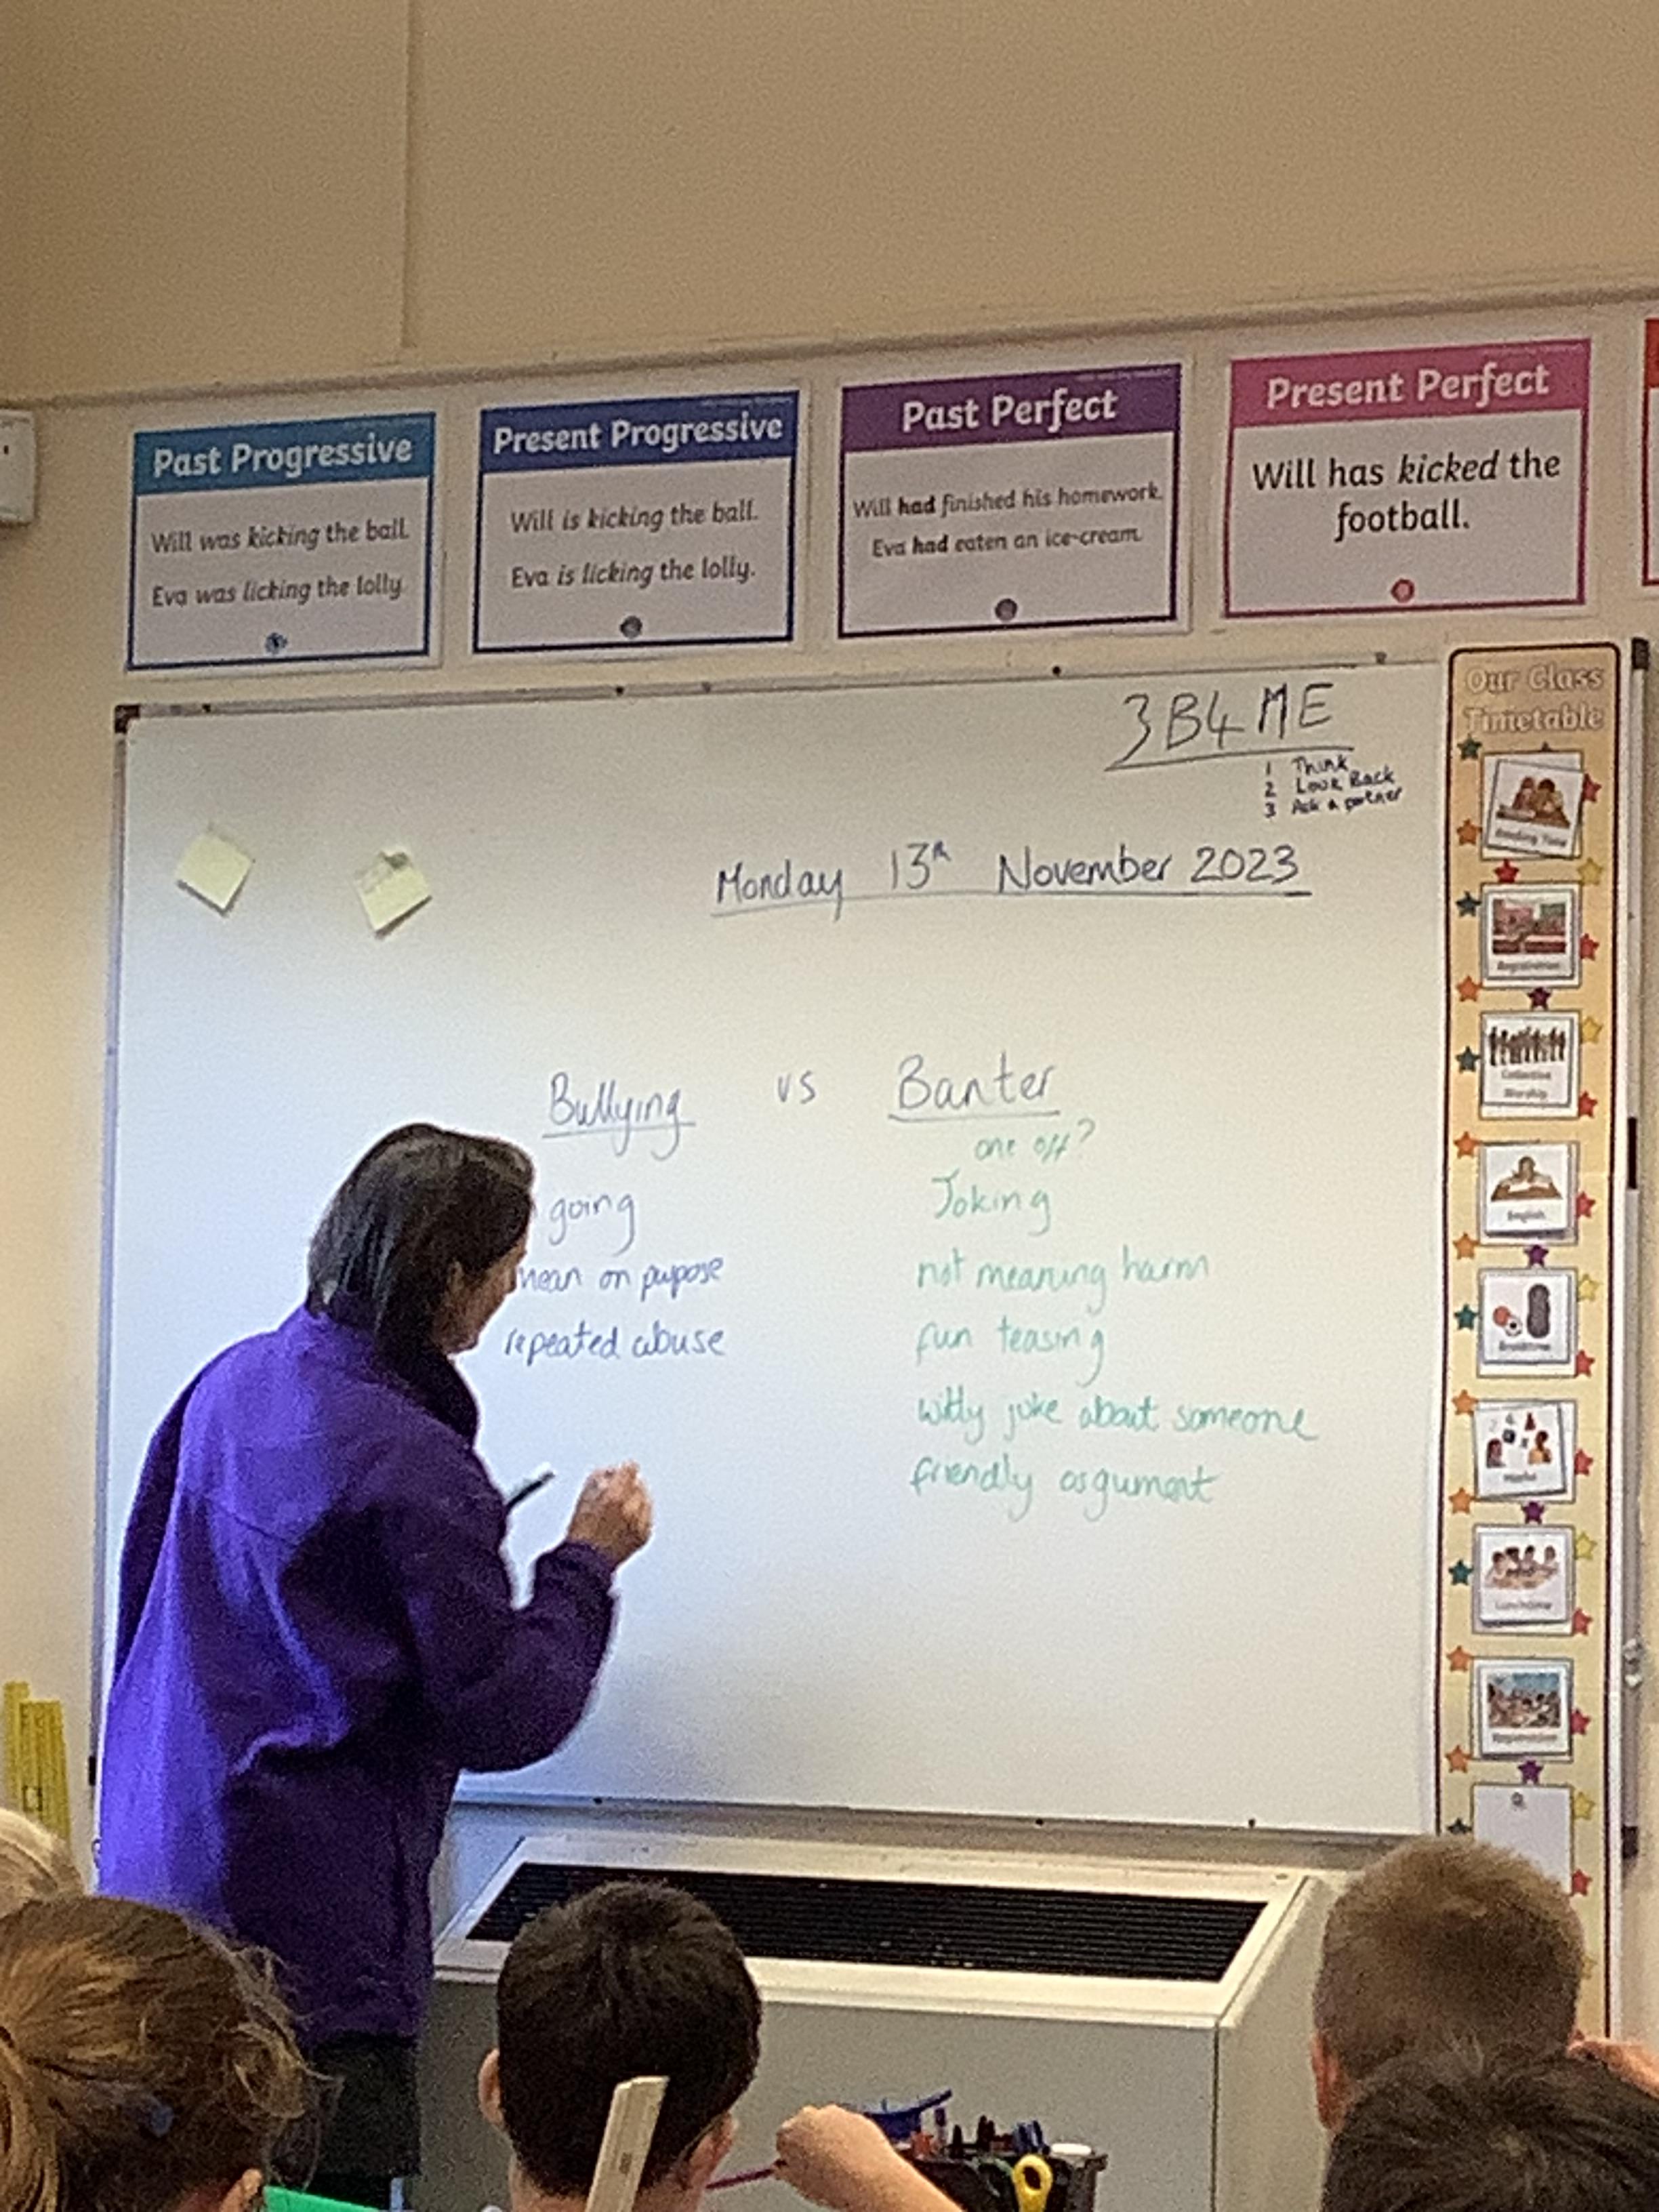 Past Progressive
Will was kicking the ball.
Eva was licking the lolly.
Present Progressive
Will is kicking the ball.
Eva is licking the lolly.
Past Perfect
Will had finished his homework.
Eva had eaten an ice-cream.
Present Perfect
Will has kicked the
football.
3B4ME
1 Think
2 Look Back
3 Ask a partner
Monday 13th November 2023
Bullying vs Banter
one off?
going
mean on pupose
repeated abuse
Joking
not meaning harm
fun teasing
witty joke about someone
friendly argument
Our Class
Timetable
Reading Time
Registration
Collective
Worship
English
Breaktime
Maths
Lunchtime
Registration